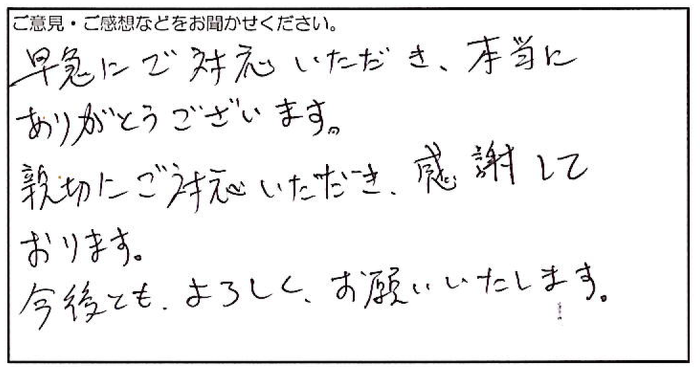 ご意見・ご感想などをお聞かせください。
早急にご対応いただき、本当に
ありがとうございます。
親切にご対応いただき、感謝して
おります。
今後とも、よろしく、お願いいたします。